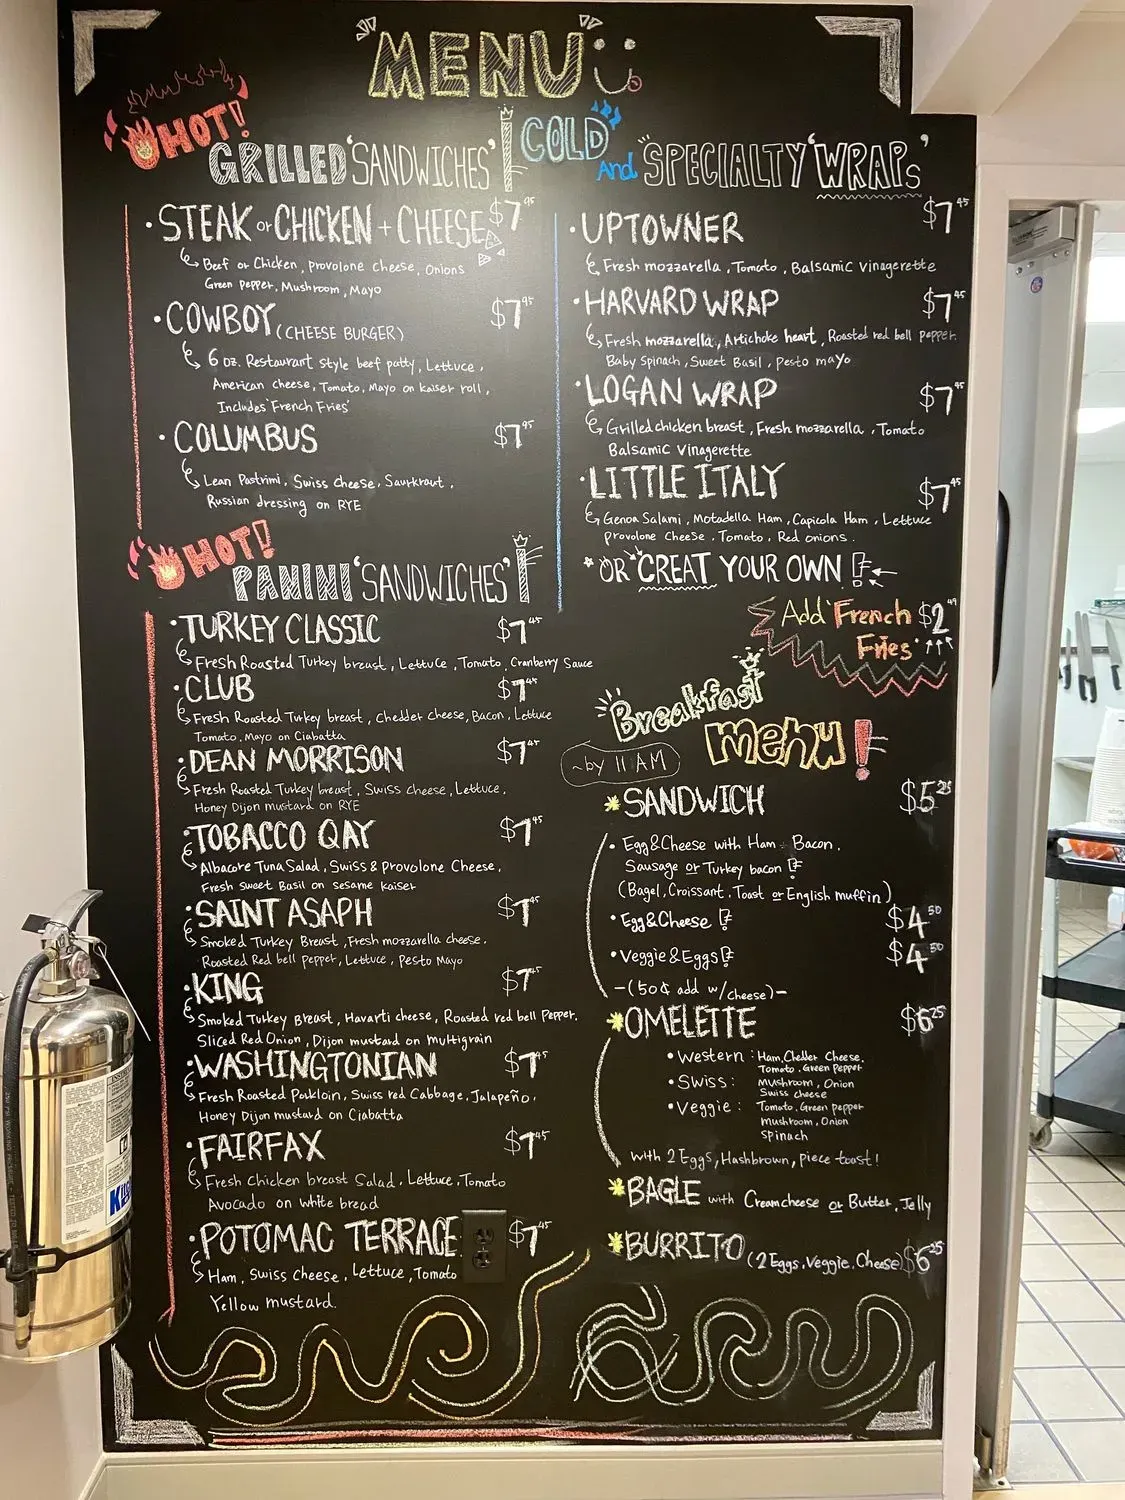 "MENU"
HOT!
GRILLED 'SANDWICHES'
• STEAK or CHICKEN + CHEESE $7.95
Beef or Chicken, provolone cheese, Onions
Green Pepper, Mushroom, Mayo
• COWBOY (CHEESE BURGER) $7.95
6 oz. Restaurant style beef patty, Lettuce,
American cheese, Tomato, Mayo on kaiser roll,
Includes 'French Fries'
• COLUMBUS $7.95
Lean Pastrimi, Swiss cheese, Saurkraut,
Russian dressing on RYE
HOT!
PANINI 'SANDWICHES'
• TURKEY CLASSIC $7.45
Fresh Roasted Turkey breast, Lettuce, Tomato, Cranberry Sauce
• CLUB $7.45
Fresh Roasted Turkey breast, Chedder cheese, Bacon, Lettuce
Tomato, Mayo on Ciabatta
• DEAN MORRISON $7.45
Fresh Roasted Turkey breast, Swiss cheese, Lettuce,
Honey Dijon mustard on RYE
• TOBACCO QAY $7.45
Albacore Tuna Salad, Swiss & provolone Cheese,
Fresh sweet Basil on sesame kaiser
• SAINT ASAPH $7.45
Smoked Turkey Breast, Fresh mozzarella cheese,
Roasted Red bell pepper, Lettuce, Pesto Mayo
• KING $7.45
Smoked Turkey Breast, Havarti cheese, Roasted red bell Pepper,
Sliced Red Onion, Dijon mustard on multigrain
• WASHINGTONIAN $7.45
Fresh Roasted Porkloin, Swiss red Cabbage, Jalapeño,
Honey Dijon mustard on Ciabatta
• FAIRFAX $7.45
Fresh Chicken breast Salad, Lettuce, Tomato
Avocado on white bread
• POTOMAC TERRACE $7.45
Ham, Swiss cheese, Lettuce, Tomato
Yellow mustard.
COLD And 'SPECIALTY 'WRAPs'
• UPTOWNER $7.45
Fresh mozzarella, Tomato, Balsamic vinagerette
• HARVARD WRAP $7.45
Fresh mozzarella, Artichoke heart, Roasted red bell pepper
Baby Spinach, Sweet Basil, pesto mayo
• LOGAN WRAP $7.45
Grilled chicken breast, Fresh mozzarella, Tomato
Balsamic vinagerette
• LITTLE ITALY $7.45
Genoa Salami, Motadella Ham, Capicola Ham, Lettuce
provolone Cheese, Tomato, Red onions.
* OR "CREAT YOUR OWN
Add 'French $2.49
Fries'
Breakfast
menu!
~by 11AM
*SANDWICH $5.25
• Egg&Cheese with Ham, Bacon,
Sausage or Turkey bacon
(Bagel, Croissant, Toast or English muffin)
• Egg&Cheese $4.50
• Veggie&Eggs $4.50
-(50¢ add w/cheese)-
*OMELETTE $6.25
• Western: Ham, Chedder Cheese,
Tomato, Green Pepper
• Swiss: Mushroom, Onion
Swiss cheese
• Veggie: Tomato, Green pepper
Mushroom, Onion
Spinach
with 2 Eggs, Hashbrown, piece toast!
*BAGLE with Creamcheese or Butter, Jelly
*BURRITO (2 Eggs, Veggie, Cheese) $6.25